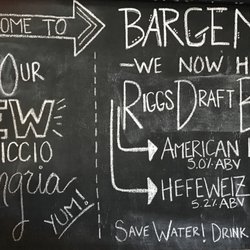 OME TO
OUR
EW
ICCIO
ngria
YUM!
BARGEN
-WE NOW H
RIGGS DRAFT B
AMERICAN
5.0% ABV
HEFEWEIZ
5.2% ABV
SAVE WATER! DRINK